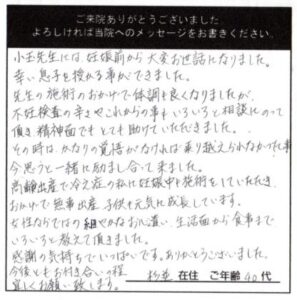 ご来院ありがとうございました
よろしければ当院へのメッセージをお書きください。
小玉先生には、妊娠前から大変お世話になりました。
幸い息子を授かる事ができました。
先生の施術のおかげで体調も良くなりましたが、
不妊検査の辛さやこれからの事もいろいろと相談にのって
頂き精神面でもとても助けていただきました。
その時は、かなりの覚悟がなければ乗り越えられなかった事
今思うと一緒に励まし合って来ました。
高齢出産で冷え症の私に妊娠中も施術をしていただき、
おかげで無事出産、子供も元気に成長しています。
女性ならではの細やかなお心遣い、生活面から食事まで
いろいろと教えて頂きました。
感謝の気持ちでいっぱいです。ありがとうございました。
今後ともお付き合いの程
宜しくお願い致します。
杉並 在住 ご年齢 40代